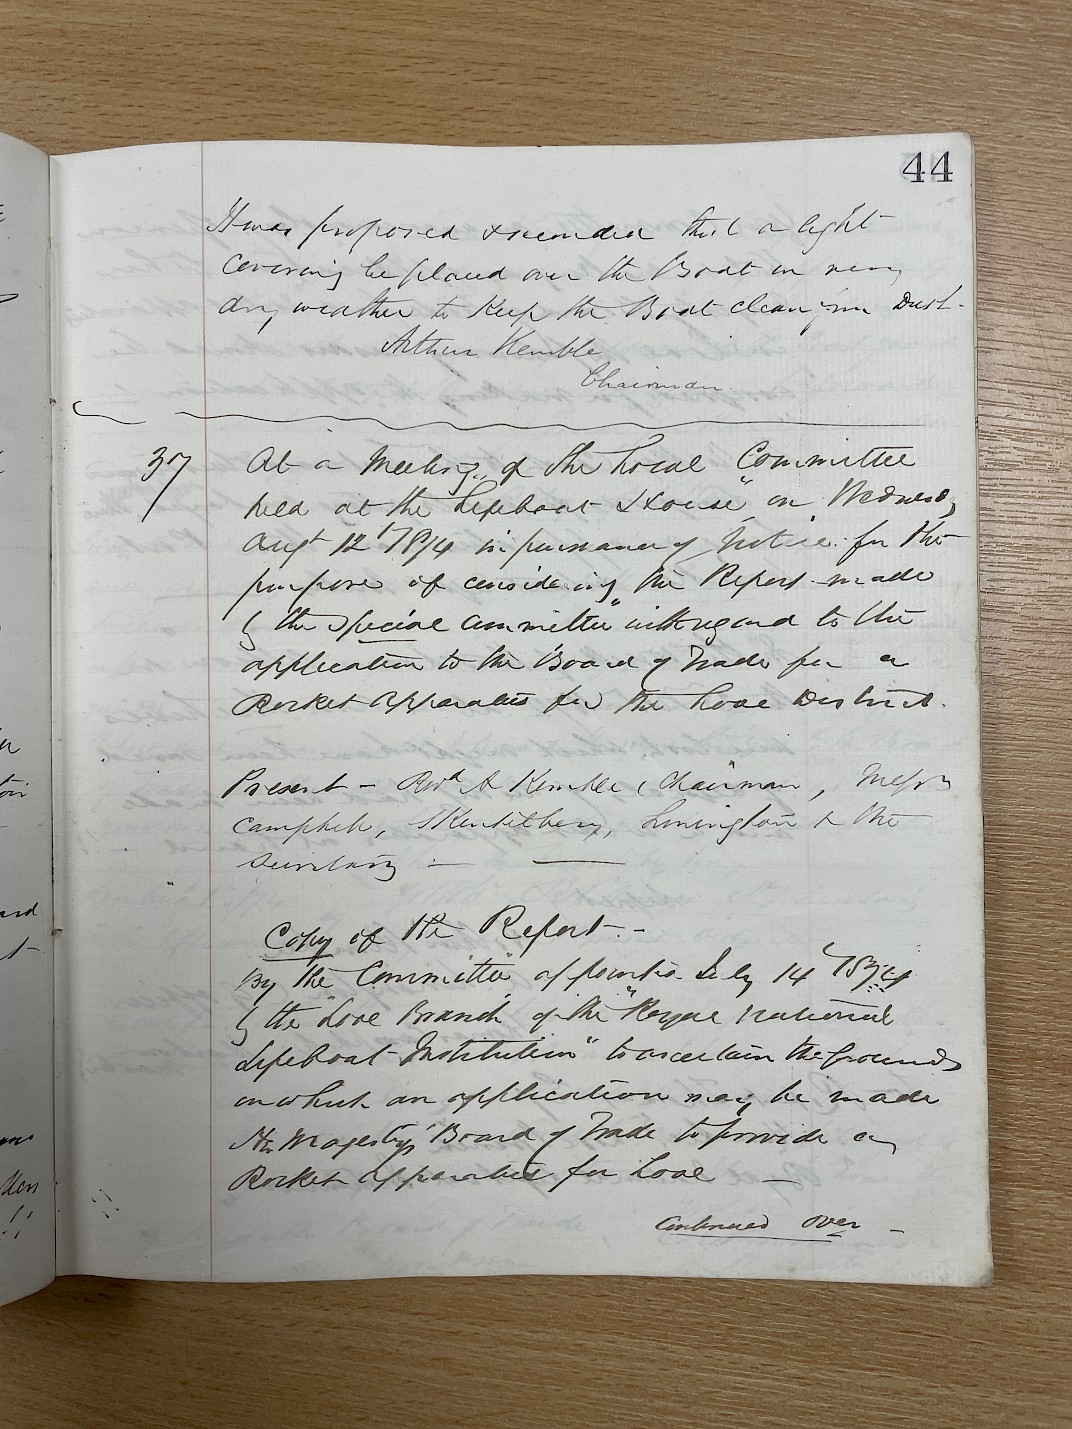 44
It was proposed & seconded that a light
covering be placed over the Boat in very
dry weather to keep the Boat clean from Dust.
Arthur Kemble
Chairman.
37
At a Meeting of the Local "Committee
held at the Lifeboat House" on Wednesdy
Augt 12 1874 in pursuance of Notice for the
purpose of considering the Report made
by the special Committee" with regard to the
application to the Board of Trade for a
Rocket Apparatus for the Looe District.
Present - Revd A Kemble (Chairman, Messrs
Campbell, Kentelbery, Limington & the
Secretary : —
Copy of the Report. -
By the Committee appointed July 14 1874
by the Looe Branch of the "Royal National
Lifeboat Institution" to ascertain the grounds
on which an application may be made
Her Magesty's Board of Trade to provide a
Rocket Apparatus for Looe —
Continued over -